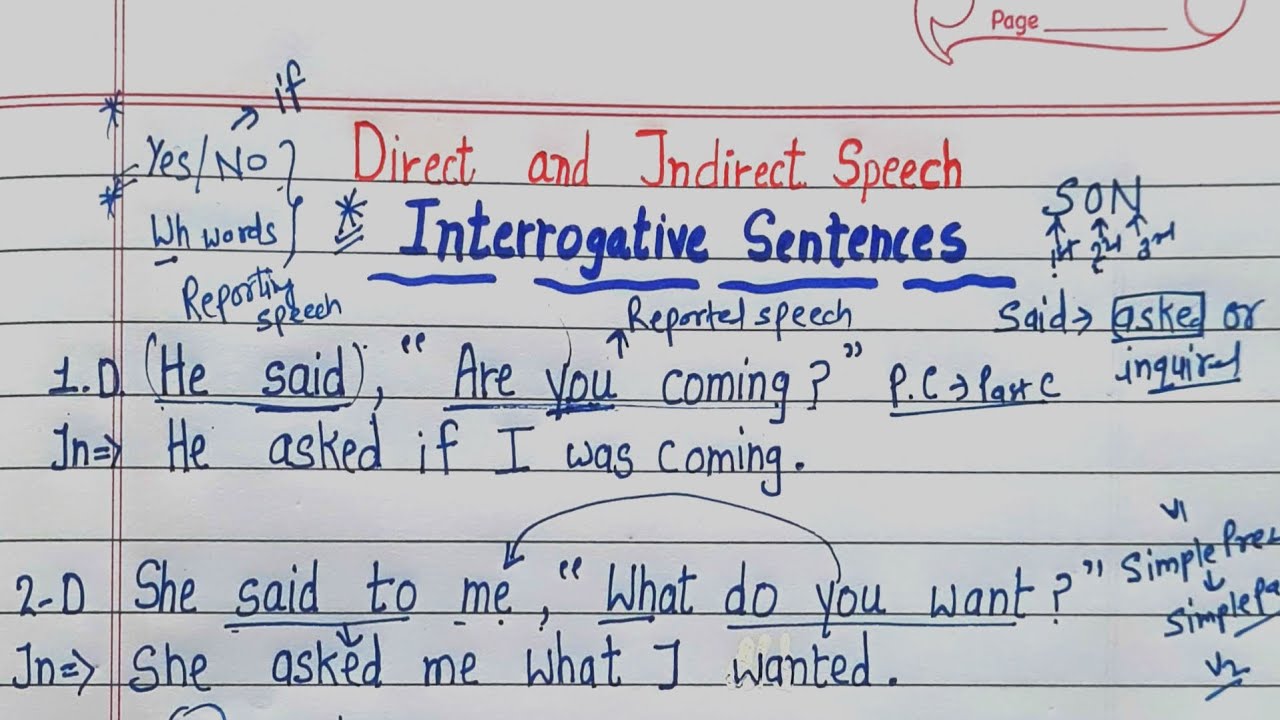 Page
if
Yes/No
Direct and Indirect Speech
SON
1st 2nd 3rd
Wh words
Interrogative Sentences
Reporting speech
Reported speech
Said → asked or
inquired
1.D (He said), "Are you coming?" P.C → Past C
In ⇒ He asked if I was coming.
V1
2-D She said to me, "What do you want?" Simple Pres
Simple Pa
In ⇒ She asked me what I wanted.
V2